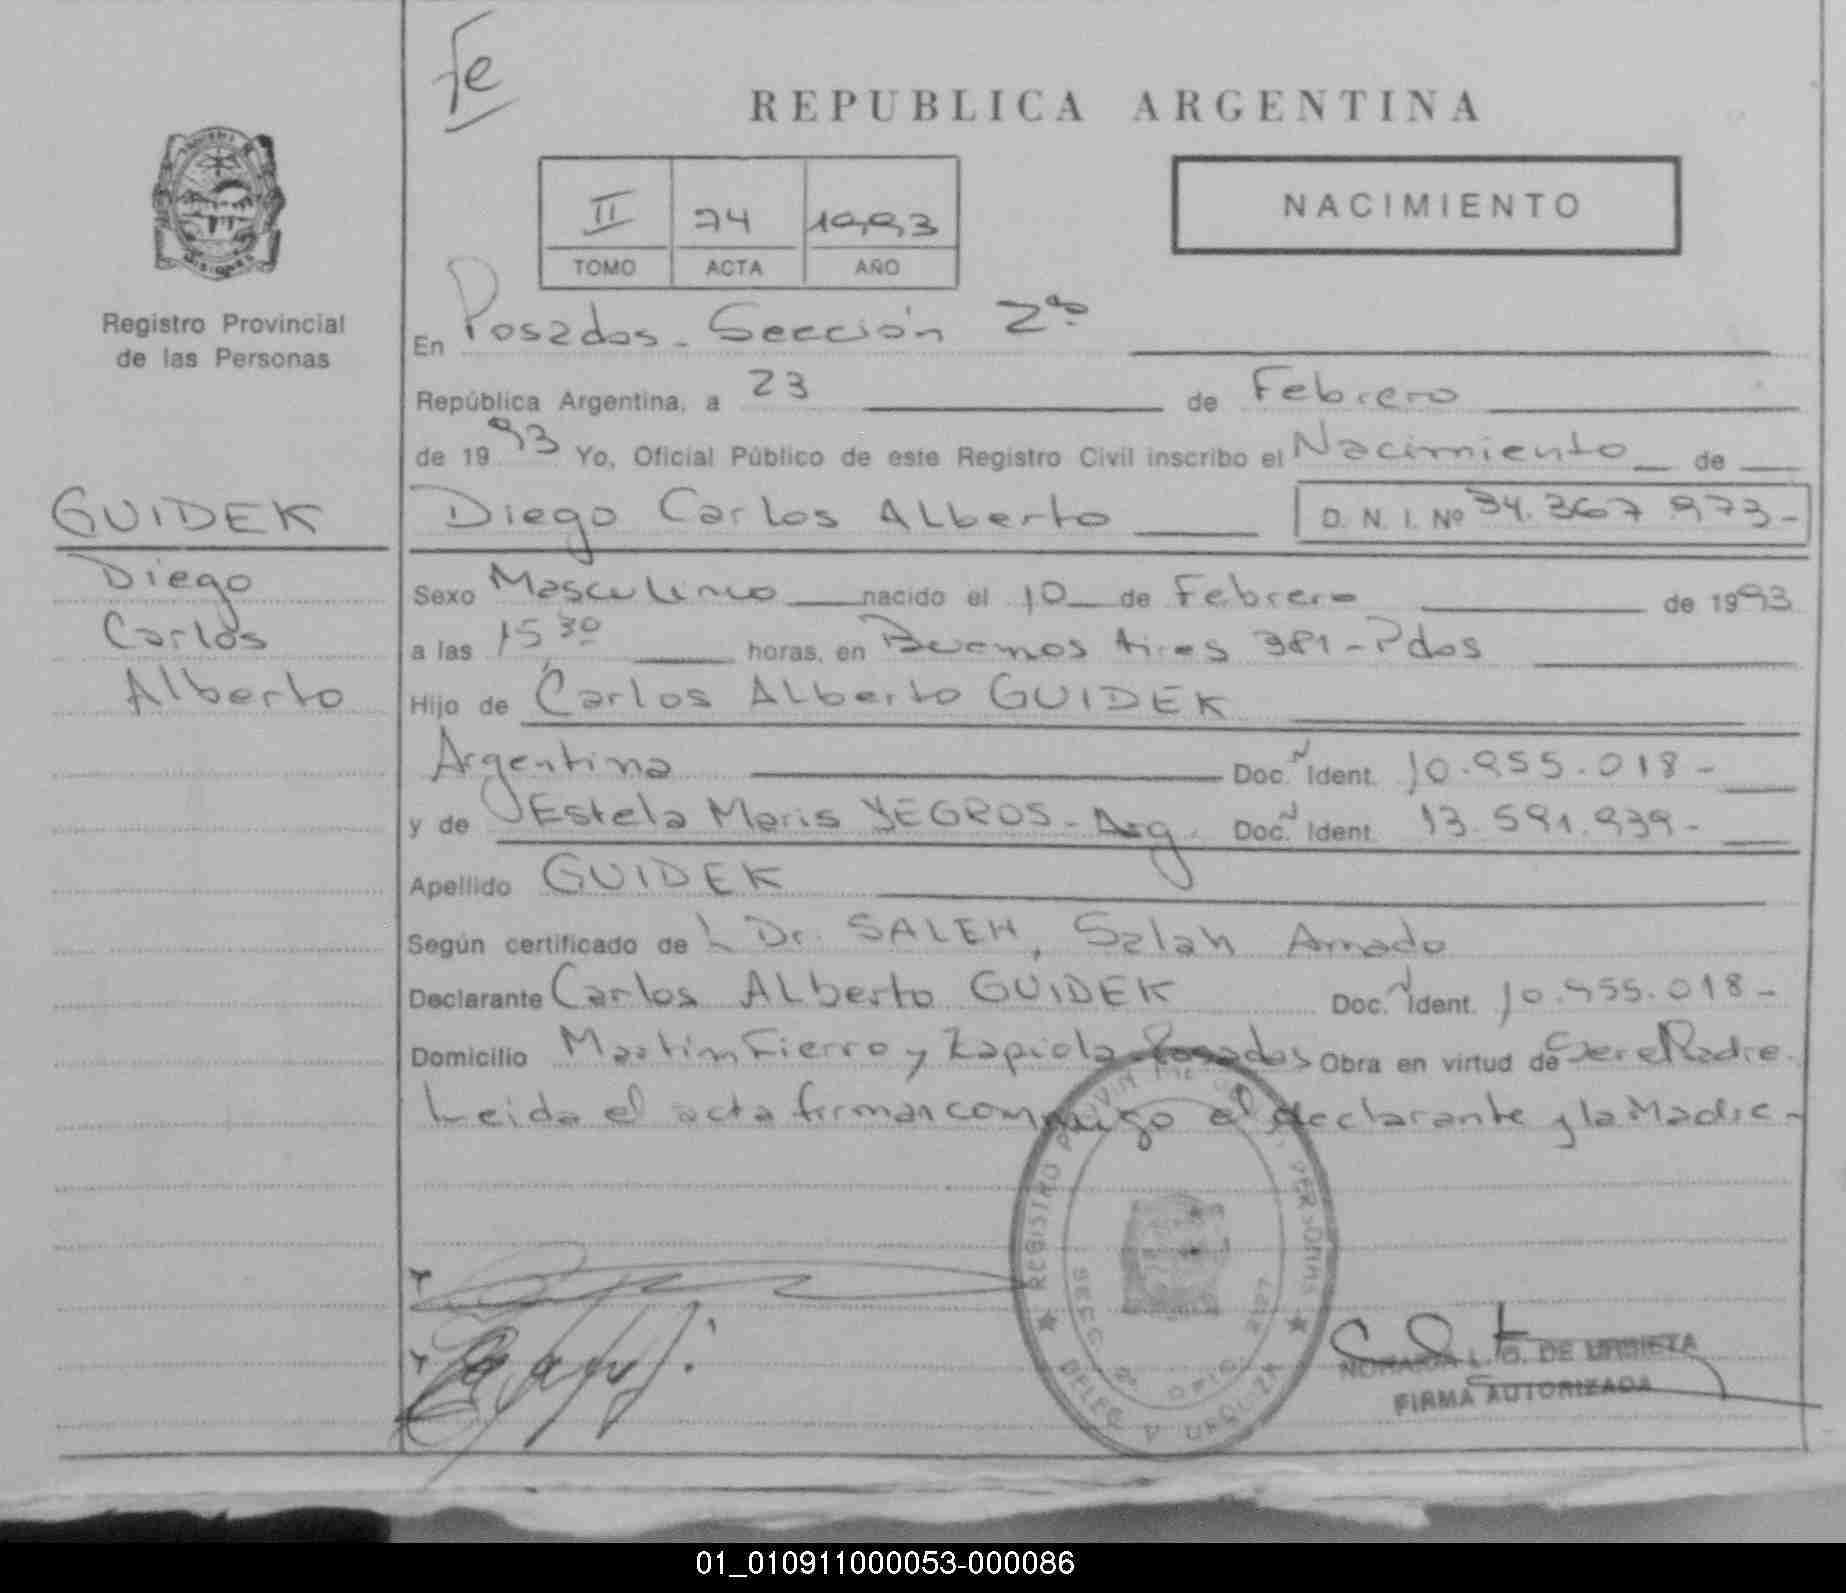 Fe
REPUBLICA ARGENTINA
II 74 1993
TOMO ACTA AÑO
NACIMIENTO
Registro Provincial
de las Personas
En Posadas - Sección 2ª
República Argentina, a 23 de Febrero
de 1993 Yo, Oficial Público de este Registro Civil inscribo el Nacimiento de
GUIDEK
Diego
Carlos
Alberto
Diego Carlos Alberto D. N. I. Nº 34.367.973-
Sexo Masculino nacido el 10 de Febrero de 1993
a las 15 30 horas, en Buenos Aires 381 - Pdas
Hijo de Carlos Alberto GUIDEK
Argentina Doc. Ident. 10.955.018-
y de Estela Maris YEGROS - Arg. Doc. Ident. 13.591.939-
Apellido GUIDEK
Según certificado de Dr. SALEH, Salah Amado
Declarante Carlos Alberto GUIDEK Doc. Ident. 10.955.018-
Domicilio Martin Fierro y Zapiola Posadas Obra en virtud de Ser el Padre.
Leida el acta firman conmigo el declarante y la Madre-
REGISTRO PERSONAS
NORMA L. G. DE URBIETA
FIRMA AUTORIZADA
01_010911000053-000086